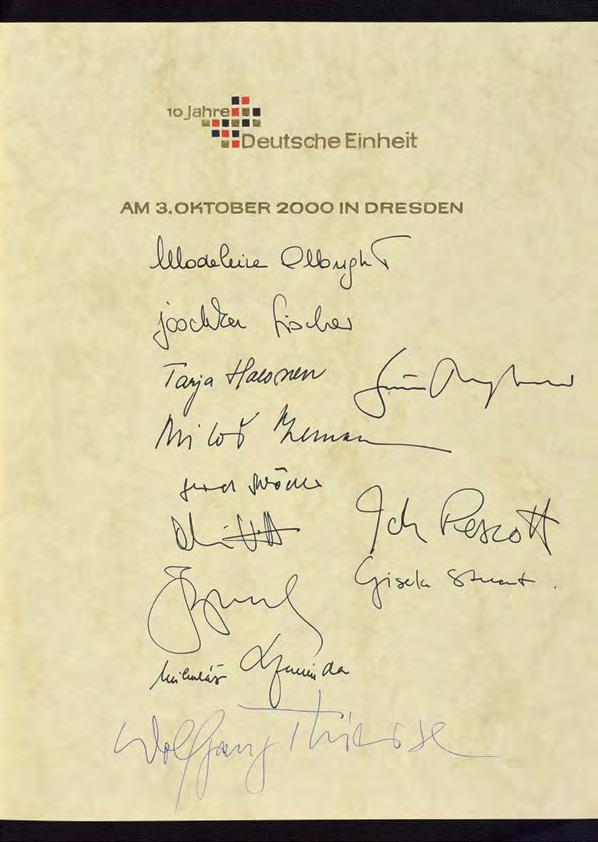 10 Jahre
Deutsche Einheit
AM 3. OKTOBER 2000 IN DRESDEN
Madeleine Albright
Joschka Fischer
Tarja Halonen
Miloš Zeman
John Prescott
Gisela Stuart
Mikuláš Dzurinda
Wolfgang Thierse